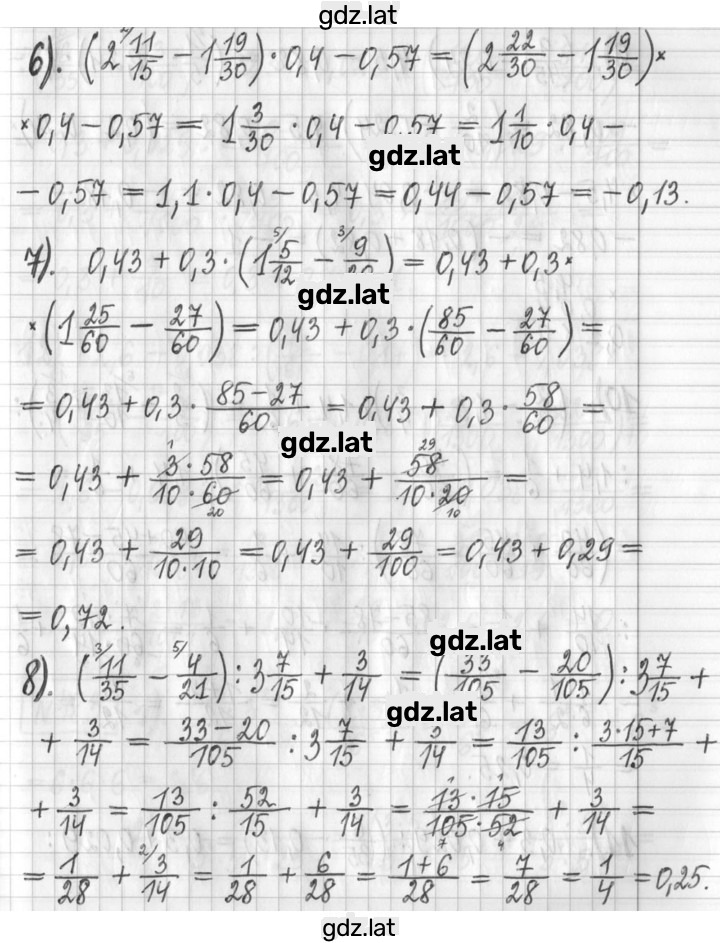 gdz.lat
6). (2 11/15 − 1 19/30) · 0,4 − 0,57 = (2 22/30 − 1 19/30) ×
× 0,4 − 0,57 = 1 3/30 · 0,4 − 0,57 = 1 1/10 · 0,4 −
gdz.lat
− 0,57 = 1,1 · 0,4 − 0,57 = 0,44 − 0,57 = −0,13.
7). 0,43 + 0,3 · (1 5/12 − 9/20) = 0,43 + 0,3 ×
gdz.lat
× (1 25/60 − 27/60) = 0,43 + 0,3 · (85/60 − 27/60) =
= 0,43 + 0,3 · (85−27)/60 = 0,43 + 0,3 · 58/60 =
gdz.lat
= 0,43 + (3 · 58)/(10 · 60) = 0,43 + 58/(10 · 20) =
= 0,43 + 29/(10·10) = 0,43 + 29/100 = 0,43 + 0,29 =
= 0,72.
gdz.lat
8). (11/35 − 4/21) : 3 7/15 + 3/14 = (33/105 − 20/105) : 3 7/15 +
gdz.lat
+ 3/14 = (33−20)/105 : 3 7/15 + 3/14 = 13/105 : (3·15+7)/15 +
+ 3/14 = 13/105 : 52/15 + 3/14 = (13 · 15)/(105 · 52) + 3/14 =
= 1/28 + 3/14 = 1/28 + 6/28 = (1+6)/28 = 7/28 = 1/4 = 0,25.
gdz.lat